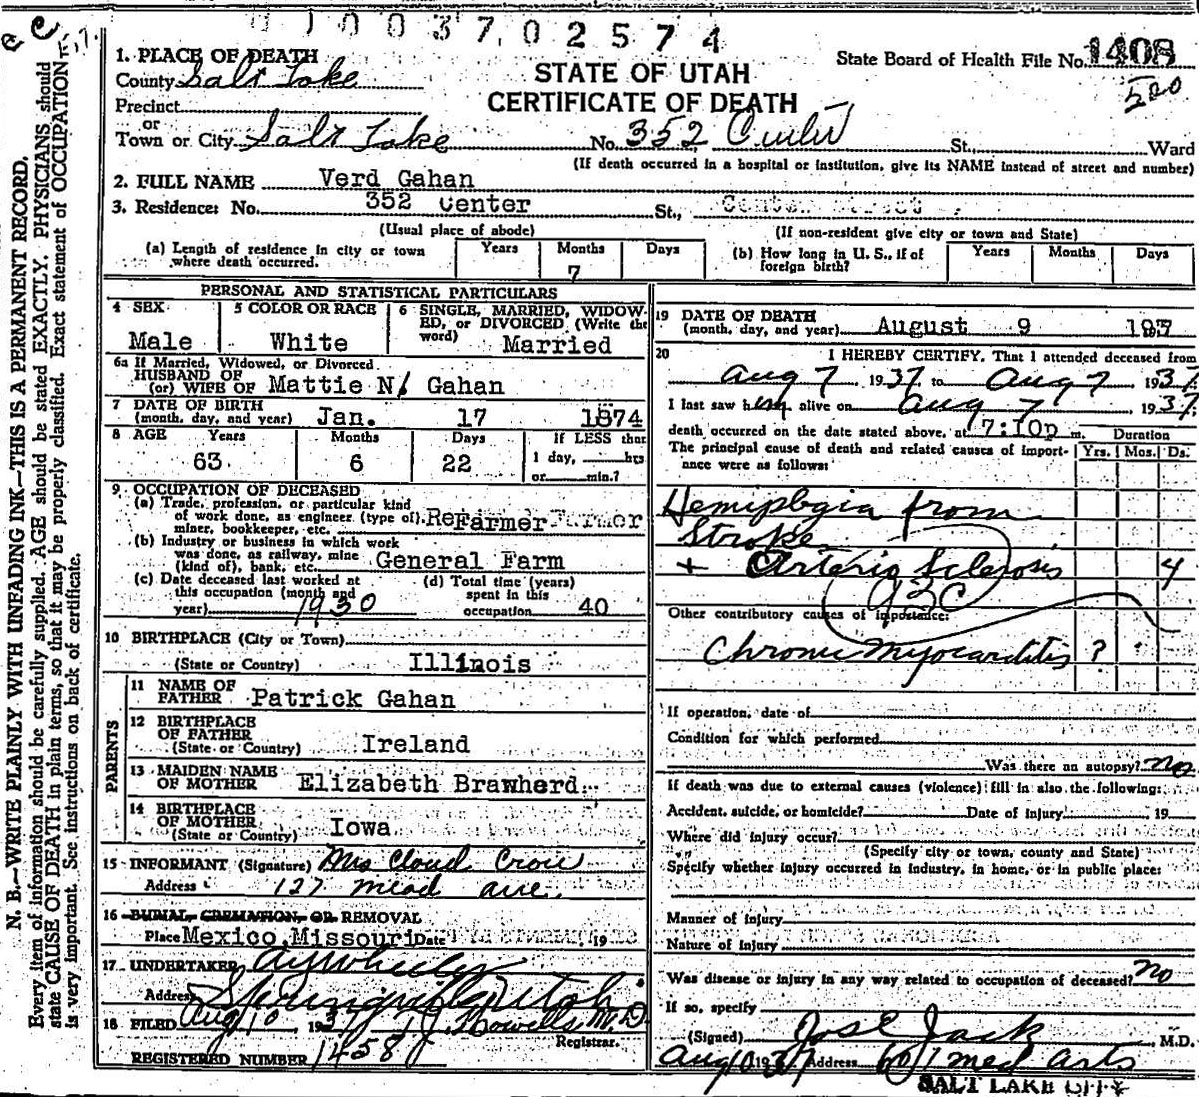 1003702574
1. PLACE OF DEATH
County Salt Lake
Precinct
or
Town or City Salt Lake
STATE OF UTAH
CERTIFICATE OF DEATH
State Board of Health File No. 1408
500
No. 352 Center St., Ward
(If death occurred in a hospital or institution, give its NAME instead of street and number)
2. FULL NAME Verd Gahan
3. Residence: No. 352 Center St., Center Street
(Usual place of abode) (If non-resident give city or town and State)
(a) Length of residence in city or town where death occurred. Years Months 7 Days
(b) How long in U. S., if of foreign birth? Years Months Days
PERSONAL AND STATISTICAL PARTICULARS
4 SEX Male
5 COLOR OR RACE White
6 SINGLE, MARRIED, WIDOWED, or DIVORCED (Write the word) Married
6a If Married, Widowed, or Divorced
HUSBAND OF
(or) WIFE OF Mattie N. Gahan
7 DATE OF BIRTH
(month, day, and year) Jan. 17 1874
8 AGE Years 63 Months 6 Days 22
If LESS than
1 day, hrs
or min.?
9 OCCUPATION OF DECEASED
(a) Trade, profession, or particular kind
of work done, as engineer (type of),
miner, bookkeeper, etc. Farmer
(b) Industry or business in which work
was done, as railway, mine
(kind of), bank, etc. General Farm
(c) Date deceased last worked at
this occupation (month and
year) 1930
(d) Total time (years)
spent in this
occupation 40
10 BIRTHPLACE (City or Town)
(State or Country) Illinois
PARENTS
11 NAME OF
FATHER Patrick Gahan
12 BIRTHPLACE
OF FATHER
(State or Country) Ireland
13 MAIDEN NAME
OF MOTHER Elizabeth Brawherd
14 BIRTHPLACE
OF MOTHER
(State or Country) Iowa
15 INFORMANT (Signature) Mrs Cloud Crow
Address 127 Mead ave.
16 BURIAL, CREMATION, OR REMOVAL
Place Mexico, Missouri Date 19
17 UNDERTAKER A Y Wheeler
Address Springville Utah
18 FILED Aug 10, 1937 Howells M.D.
Registrar.
REGISTERED NUMBER 1458
19 DATE OF DEATH
(month, day, and year) August 9 1937
20 I HEREBY CERTIFY, That I attended deceased from
Aug 7, 1937 to Aug 7, 1937
I last saw him alive on Aug 7, 1937
death occurred on the date stated above, at 7:10p m. Duration
The principal cause of death and related causes of importance were as follows: Yrs. Mos. Ds.
Hemiplegia from
Stroke
+ Arterio Sclerosis 4
93C
Other contributory causes of importance:
Chronic Myocarditis ?
If operation, date of
Condition for which performed
Was there an autopsy? no
If death was due to external causes (violence) fill in also the following:
Accident, suicide, or homicide? Date of Injury 19
Where did injury occur?
(Specify city or town, county and State)
Specify whether injury occurred in industry, in home, or in public place:
Manner of Injury
Nature of Injury
Was disease or injury in any way related to occupation of deceased? no
If so, specify
(Signed) Jos E Jack, M.D.
Aug 10 1937 Address 601 Med Arts
SALT LAKE CITY
N. B.—WRITE PLAINLY WITH UNFADING INK—THIS IS A PERMANENT RECORD.
Every item of information should be carefully supplied. AGE should be stated EXACTLY. PHYSICIANS should
state CAUSE OF DEATH in plain terms, so that it may be properly classified. Exact statement of OCCUPATION
is very important. See instructions on back of certificate.